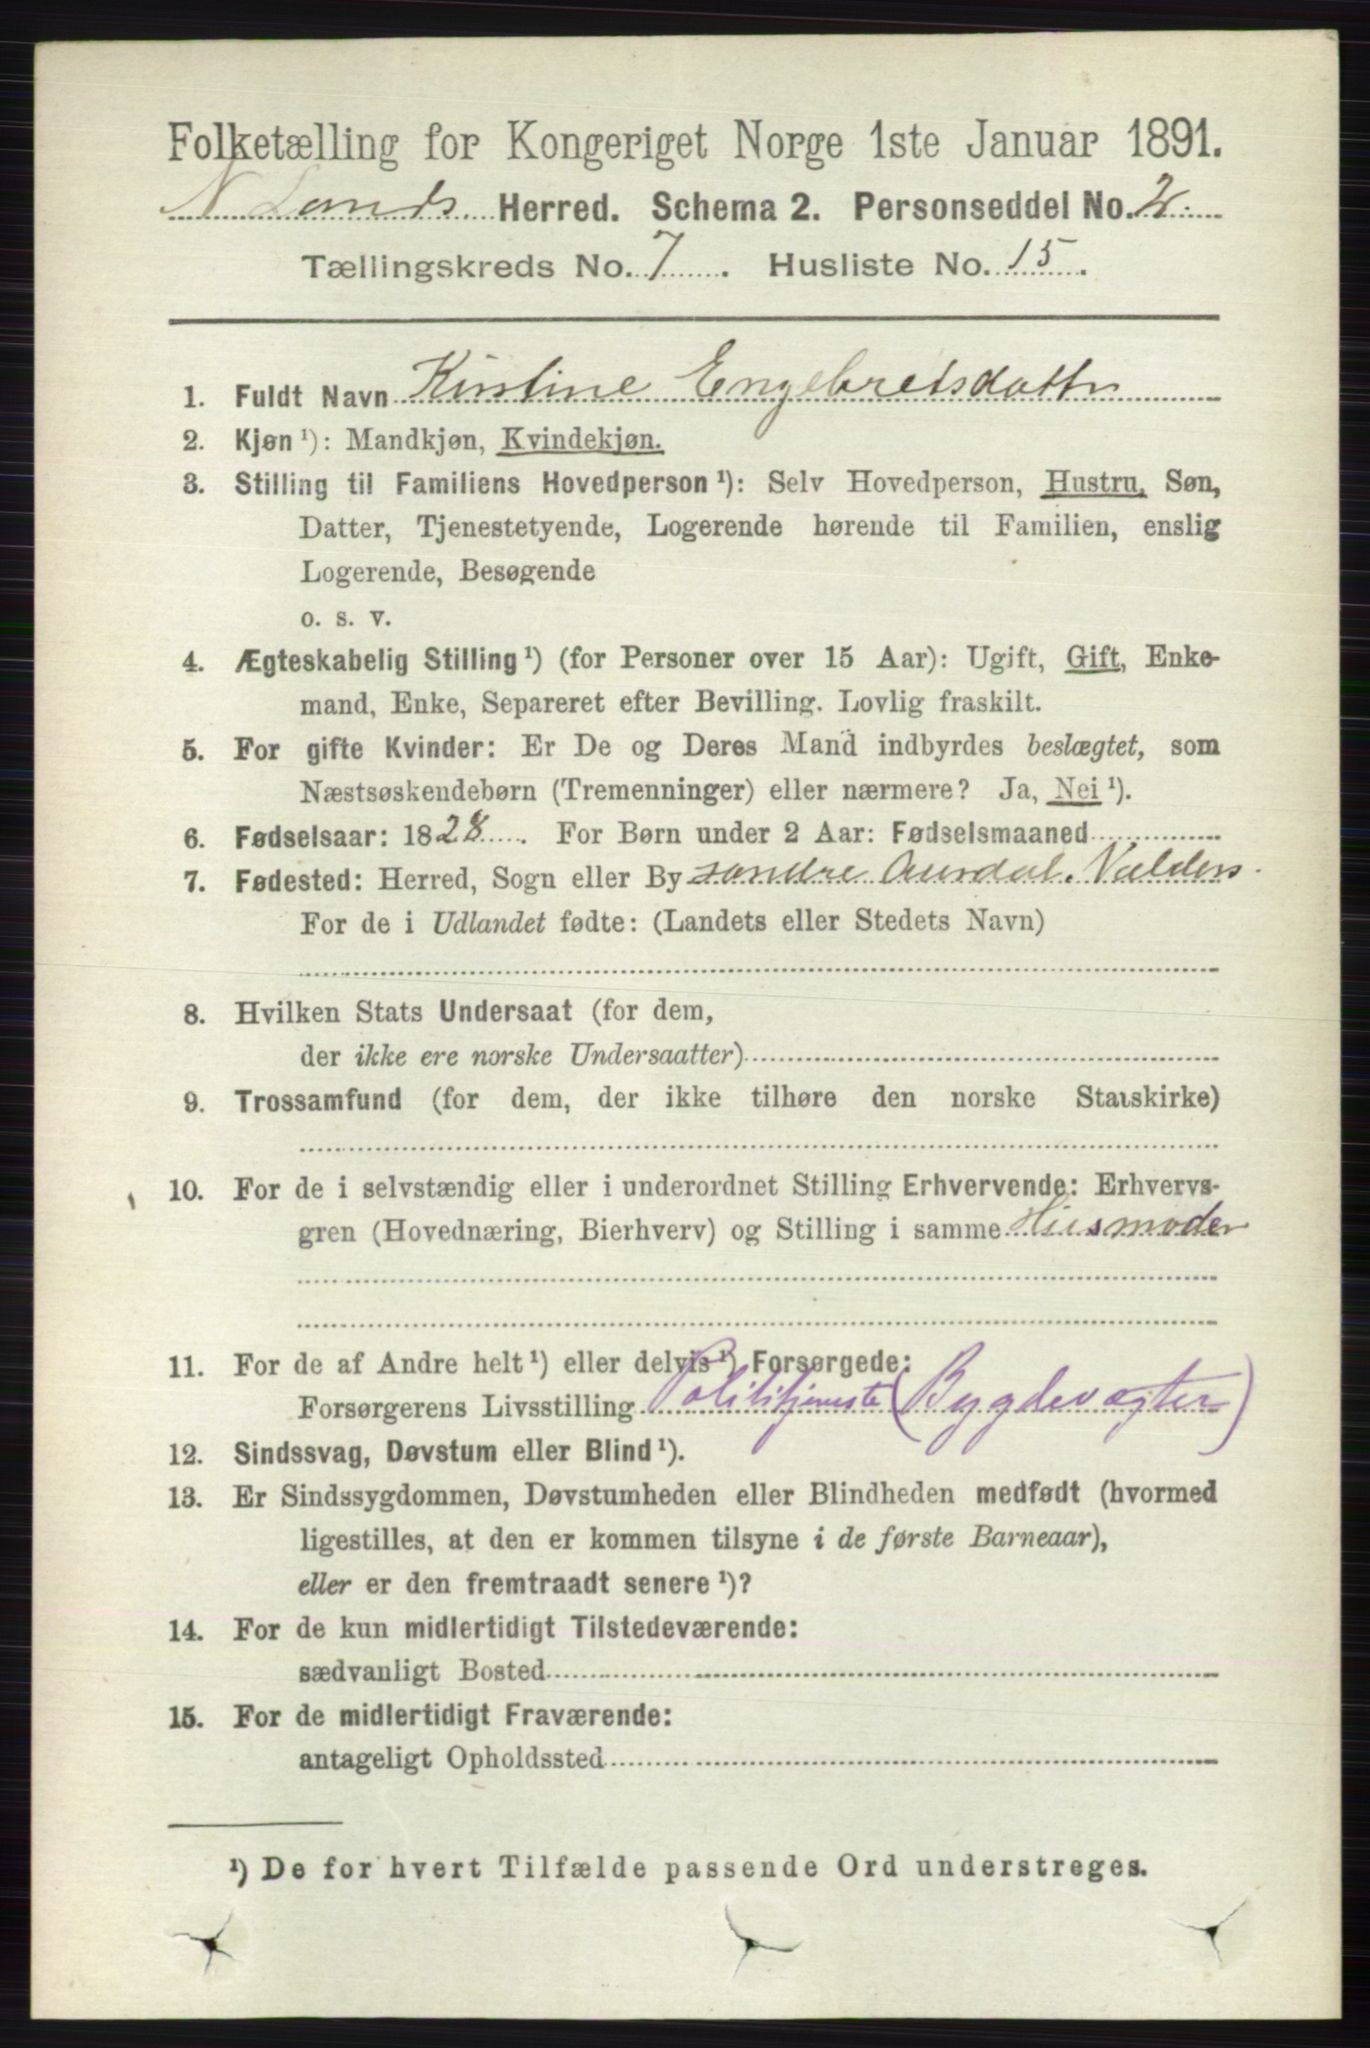 Folketælling for Kongeriget Norge 1ste Januar 1891.
N Lands Herred. Schema 2. Personseddel No. 2.
Tællingskreds No. 7. Husliste No. 15.
1. Fuldt Navn Kirstine Engebretsdatter
2. Kjøn ¹): Mandkjøn, Kvindekjøn.
3. Stilling til Familiens Hovedperson ¹): Selv Hovedperson, Hustru, Søn,
Datter, Tjenestetyende, Logerende hørende til Familien, enslig
Logerende, Besøgende
o. s. v.
4. Ægteskabelig Stilling ¹) (for Personer over 15 Aar): Ugift, Gift, Enke-
mand, Enke, Separeret efter Bevilling. Lovlig fraskilt.
5. For gifte Kvinder: Er De og Deres Mand indbyrdes beslægtet, som
Næstsøskendebørn (Tremenninger) eller nærmere? Ja, Nei ¹).
6. Fødselsaar: 1828. For Børn under 2 Aar: Fødselsmaaned
7. Fødested: Herred, Sogn eller By søndre Aurdal. Valders.
For de i Udlandet fødte: (Landets eller Stedets Navn)
8. Hvilken Stats Undersaat (for dem,
der ikke ere norske Undersaatter)
9. Trossamfund (for dem, der ikke tilhøre den norske Statskirke)
10. For de i selvstændig eller i underordnet Stilling Erhvervende: Erhvervs-
gren (Hovednæring, Bierhverv) og Stilling i samme Husmoder
11. For de af Andre helt ¹) eller delvis ¹) Forsørgede:
Forsørgerens Livsstilling Polititjeneste (Bygdevægter)
12. Sindssvag, Døvstum eller Blind ¹).
13. Er Sindssygdommen, Døvstumheden eller Blindheden medfødt (hvormed
ligestilles, at den er kommen tilsyne i de første Barneaar),
eller er den fremtraadt senere ¹)?
14. For de kun midlertidigt Tilstedeværende:
sædvanligt Bosted
15. For de midlertidigt Fraværende:
antageligt Opholdssted
¹) De for hvert Tilfælde passende Ord understreges.